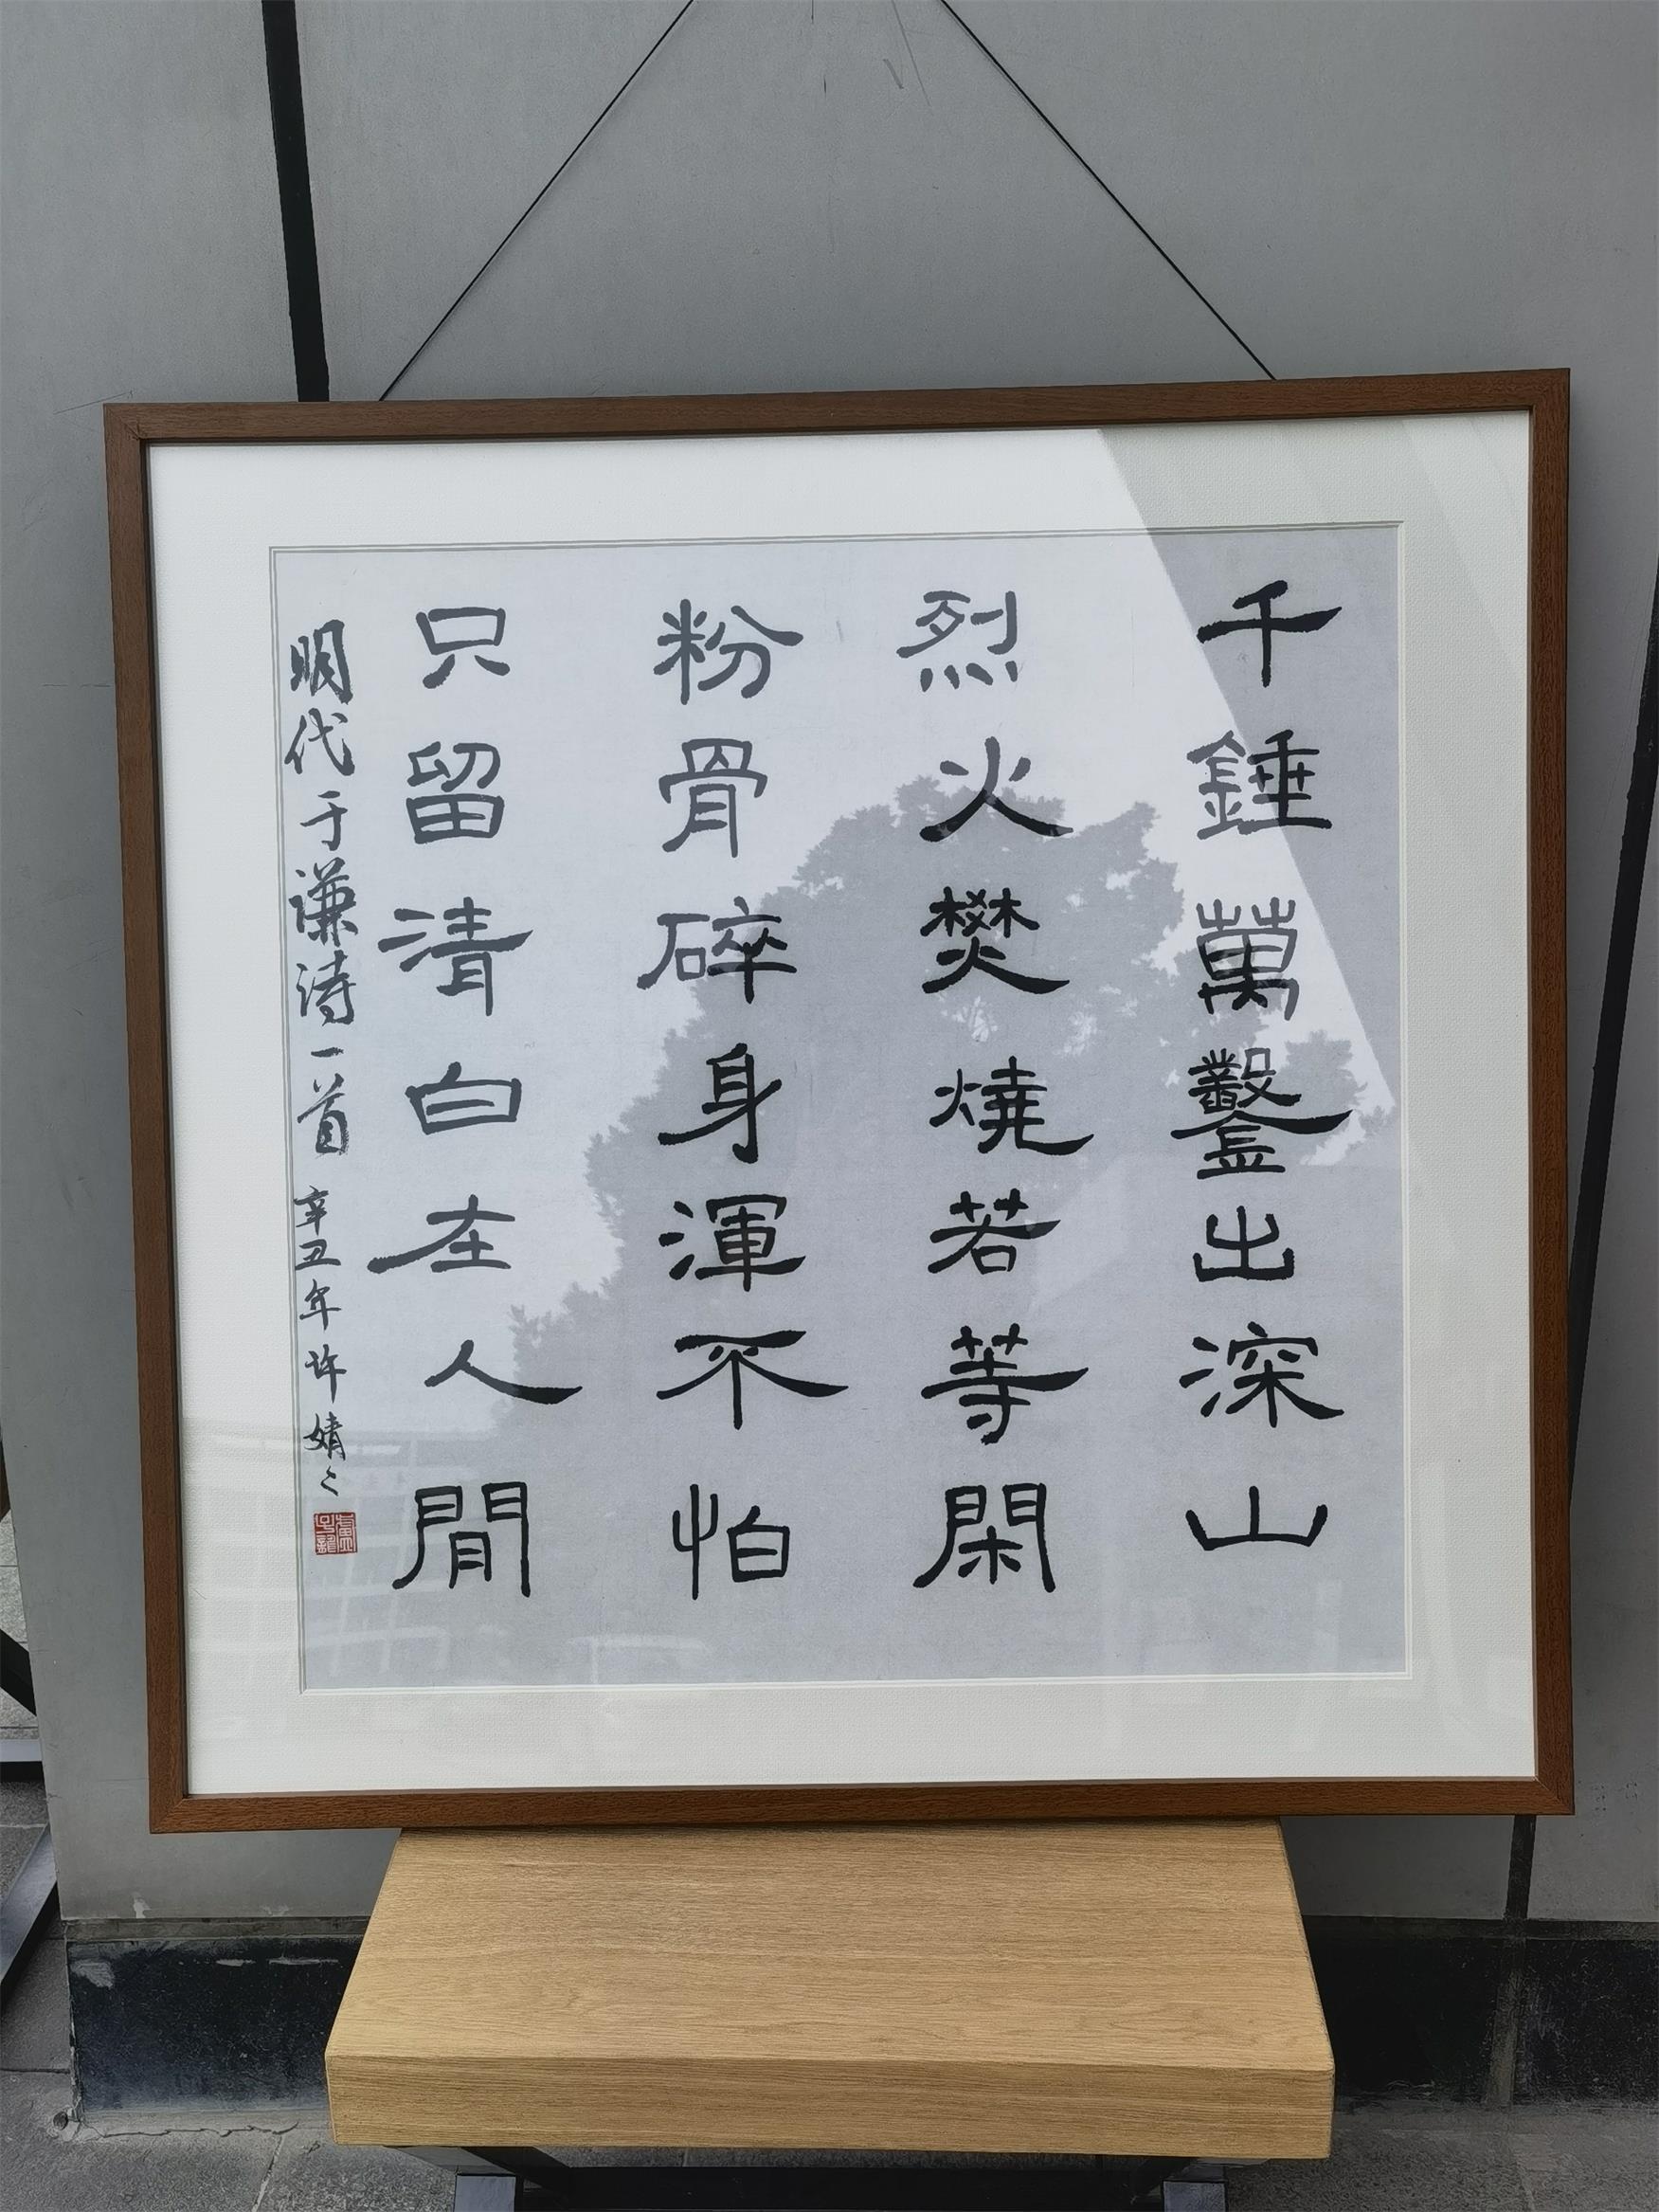 千錘萬鑿出深山
烈火焚燒若等閑
粉骨碎身渾不怕
只留清白在人間
明代于谦诗一首 辛丑年 许婧〻